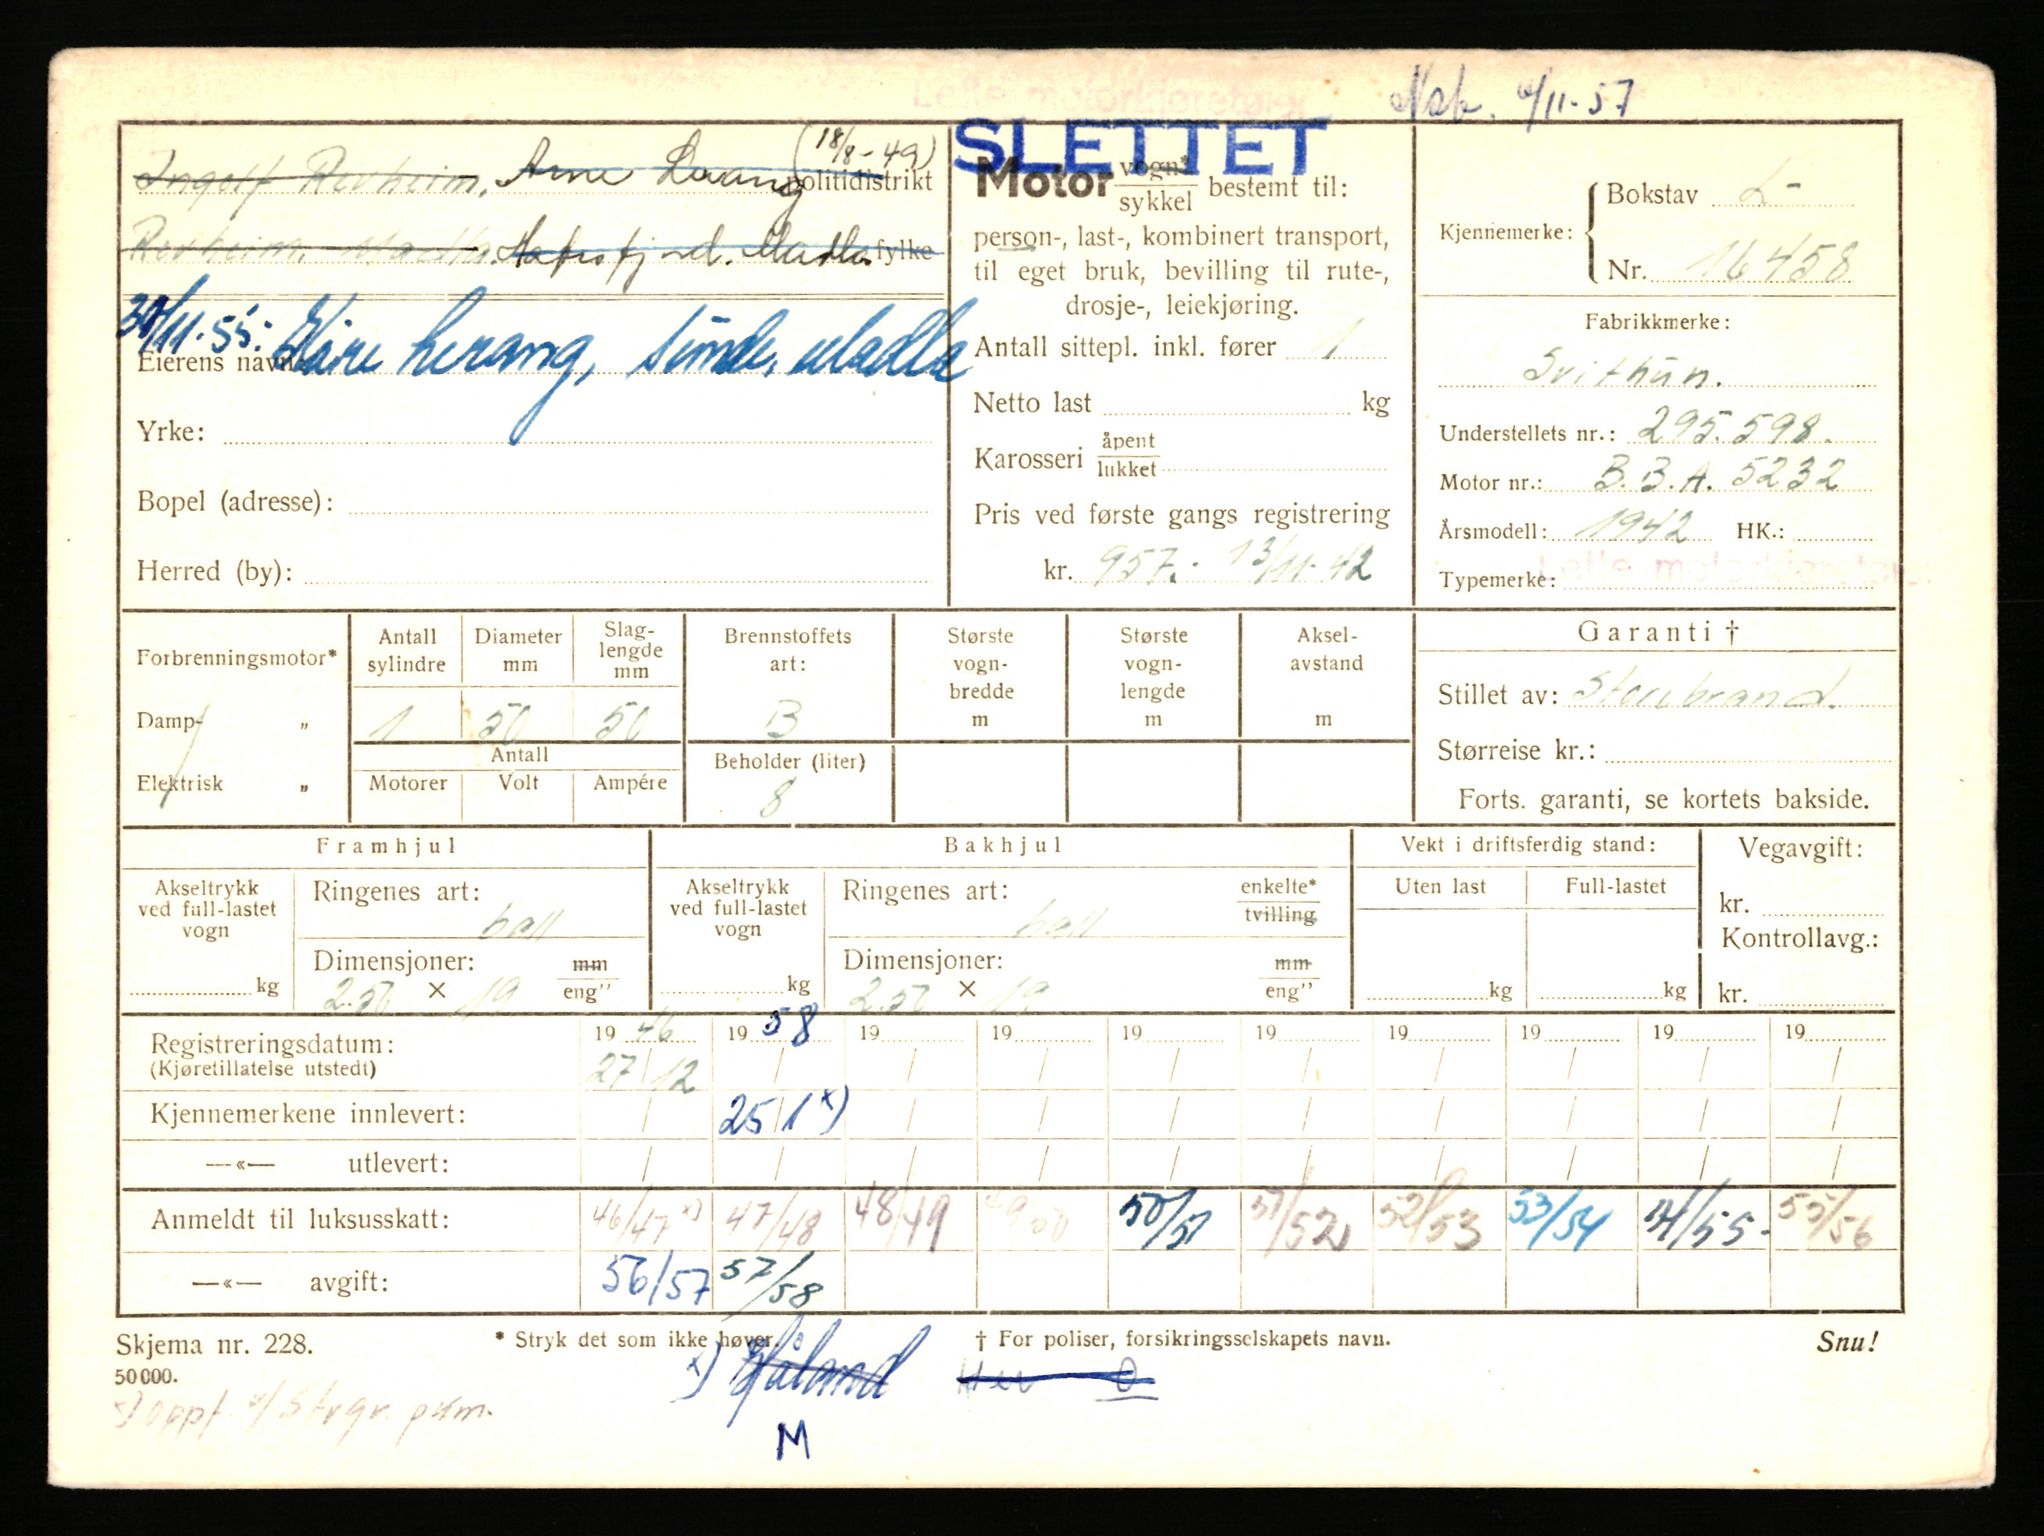 Lette motorkjøretøier
Nsb. /11-57
SLETTET
(18/8-49)
Ingolf Revheim, Arne Lerang politidistrikt
Revheim. Madla. Hafrsfjord. Madla fylke
30/11-55: Kåre Lerang, Sunde, Madla
Eierens navn
Yrke:
Bopel (adresse):
Herred (by):
Motor vogn* sykkel bestemt til:
person-, last-, kombinert transport,
til eget bruk, bevilling til rute-,
drosje-, leiekjøring.
Antall sittepl. inkl. fører 1
Netto last kg
Karosseri åpent lukket
Pris ved første gangs registrering
kr. 957.- 13/11-42
Kjennemerke: Bokstav L-
Nr. 16458
Fabrikkmerke:
Svithun.
Understellets nr.: 295.598.
Motor nr.: B.B.A. 5232
Årsmodell: 1942 HK.:
Typemerke: Lette motorkjøretøier
Forbrenningsmotor*
Damp- „
Elektrisk „
Antall sylindre Diameter mm Slag-lengde mm
1 50 50
Antall
Motorer Volt Ampére
Brennstoffets art:
B
Beholder (liter)
8
Største vogn-bredde m
Største vogn-lengde m
Aksel-avstand m
Garanti †
Stillet av: Storebrand.
Størreise kr.:
Forts. garanti, se kortets bakside.
Framhjul
Akseltrykk ved full-lastet vogn kg
Ringenes art: ball
Dimensjoner: 2.50 × 19 mm eng"
Bakhjul
Akseltrykk ved full-lastet vogn kg
Ringenes art: ball enkelte* tvilling
Dimensjoner: 2.50 × 19 mm eng"
Vekt i driftsferdig stand:
Uten last Full-lastet
kg kg
Vegavgift:
kr.
Kontrollavg.:
kr.
19 46 19 58 19 19 19 19 19 19 19 19
Registreringsdatum: 27/12
(Kjøretillatelse utstedt)
Kjennemerkene innlevert: 25/1 x)
—«— utlevert:
Anmeldt til luksusskatt: 46/47 x) 47/48 48/49 49/50 50/51 51/52 52/53 53/54 54/55- 55/56
—«— avgift: 56/57 57/58
Skjema nr. 228.
50000.
* Stryk det som ikke høver.
† For poliser, forsikringsselskapets navn.
Snu!
x) Håland
x) oppf. v/ Strgr. pkm.
M